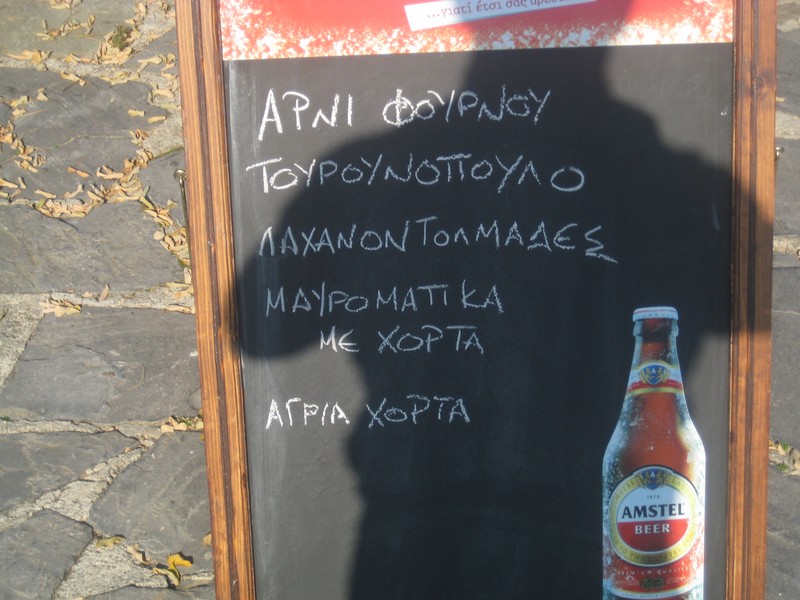 ...γιατί έτσι σας αρέσει
ΑΡΝΙ ΦΟΥΡΝΟΥ
ΤΟΥΡΟΥΝΟΠΟΥΛΟ
ΛΑΧΑΝΟΝΤΟΛΜΑΔΕΣ
ΜΑΥΡΟΜΑΤΙΚΑ
ΜΕ ΧΟΡΤΑ
ΑΓΡΙΑ ΧΟΡΤΑ
1870
AMSTEL
BEER
PREMIUM QUALITY